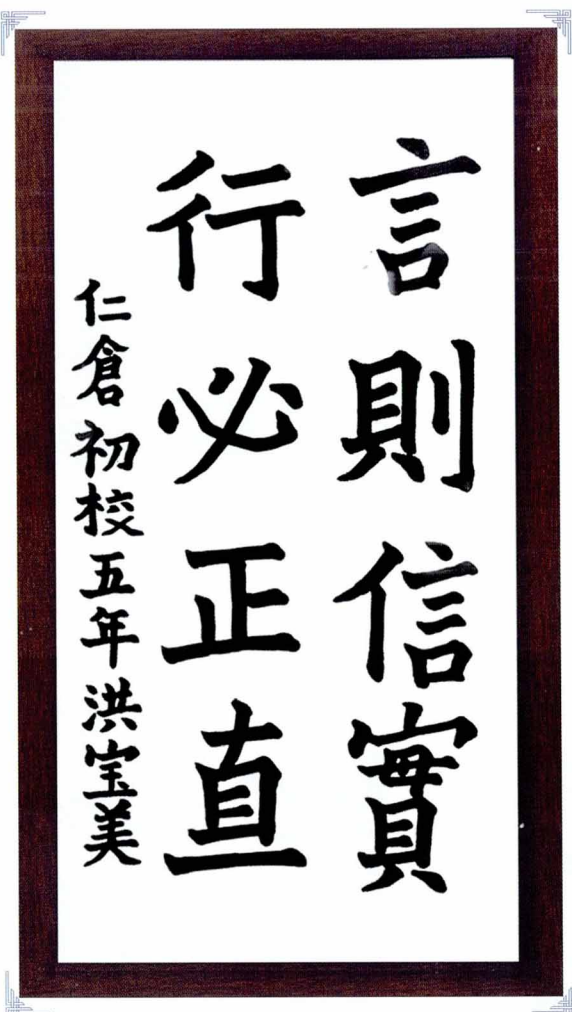 言則信實
行必正直
仁倉初校五年洪宝美